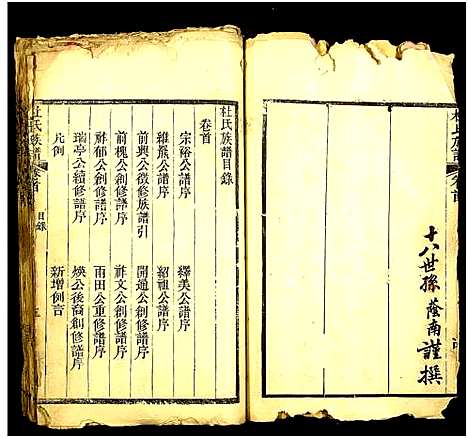 十八世孫 蔭南謹撰
杜氏族譜目錄
卷首
宗裕公譜序
繹美公譜序
維熊公譜序
紹祖公譜序
前興公徵修族譜引
開通公創修譜序
前槐公創修譜序
祚文公創修譜序
祚郁公創修譜序
雨田公重修譜序
瑞亭公續修譜序
煐公後裔創修譜序
凡例
新增例言
杜氏族譜
卷首
目錄